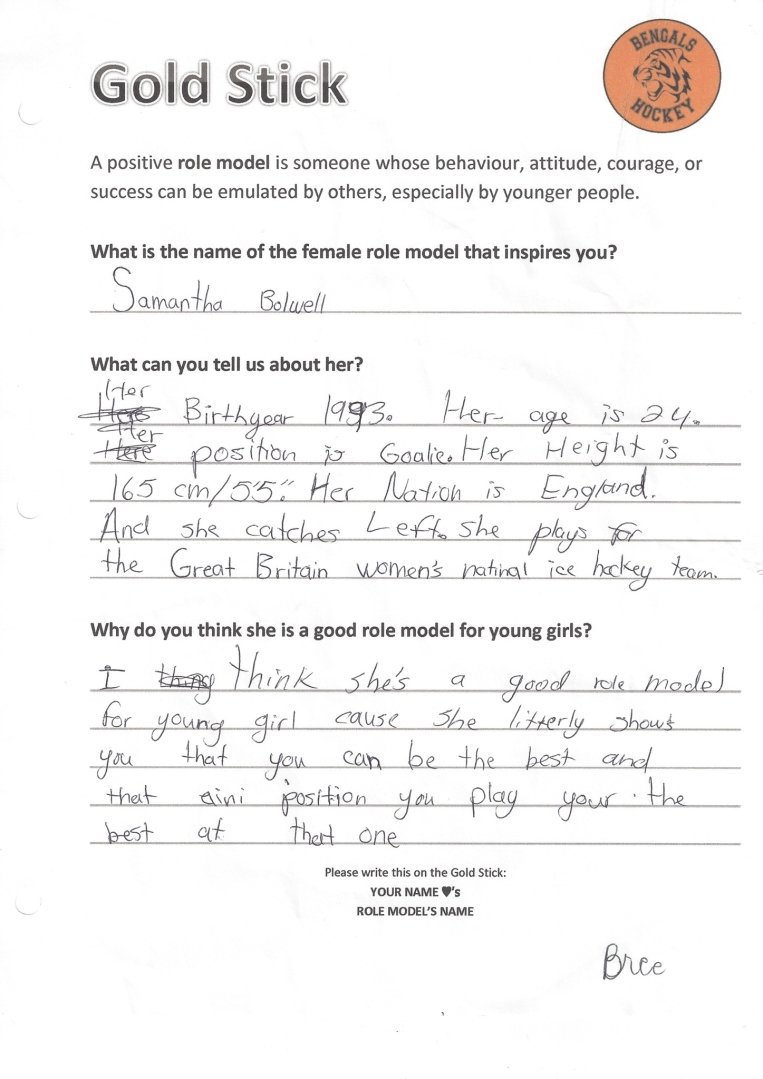 Gold Stick
BENGALS
HOCKEY
A positive role model is someone whose behaviour, attitude, courage, or
success can be emulated by others, especially by younger people.
What is the name of the female role model that inspires you?
Samantha Bolwell
What can you tell us about her?
Her Birthyear 1993. Her age is 24.
Her position is Goalie. Her Height is
165 cm/5'5". Her Nation is England.
And she catches Left. she plays for
the Great Britain women's natinal ice hockey team.
Why do you think she is a good role model for young girls?
I think she's a good role model
for young girl cause she litterly shows
you that you can be the best and
that aini position you play your the
best at that one
Please write this on the Gold Stick:
YOUR NAME ♥'s
ROLE MODEL'S NAME
Bree